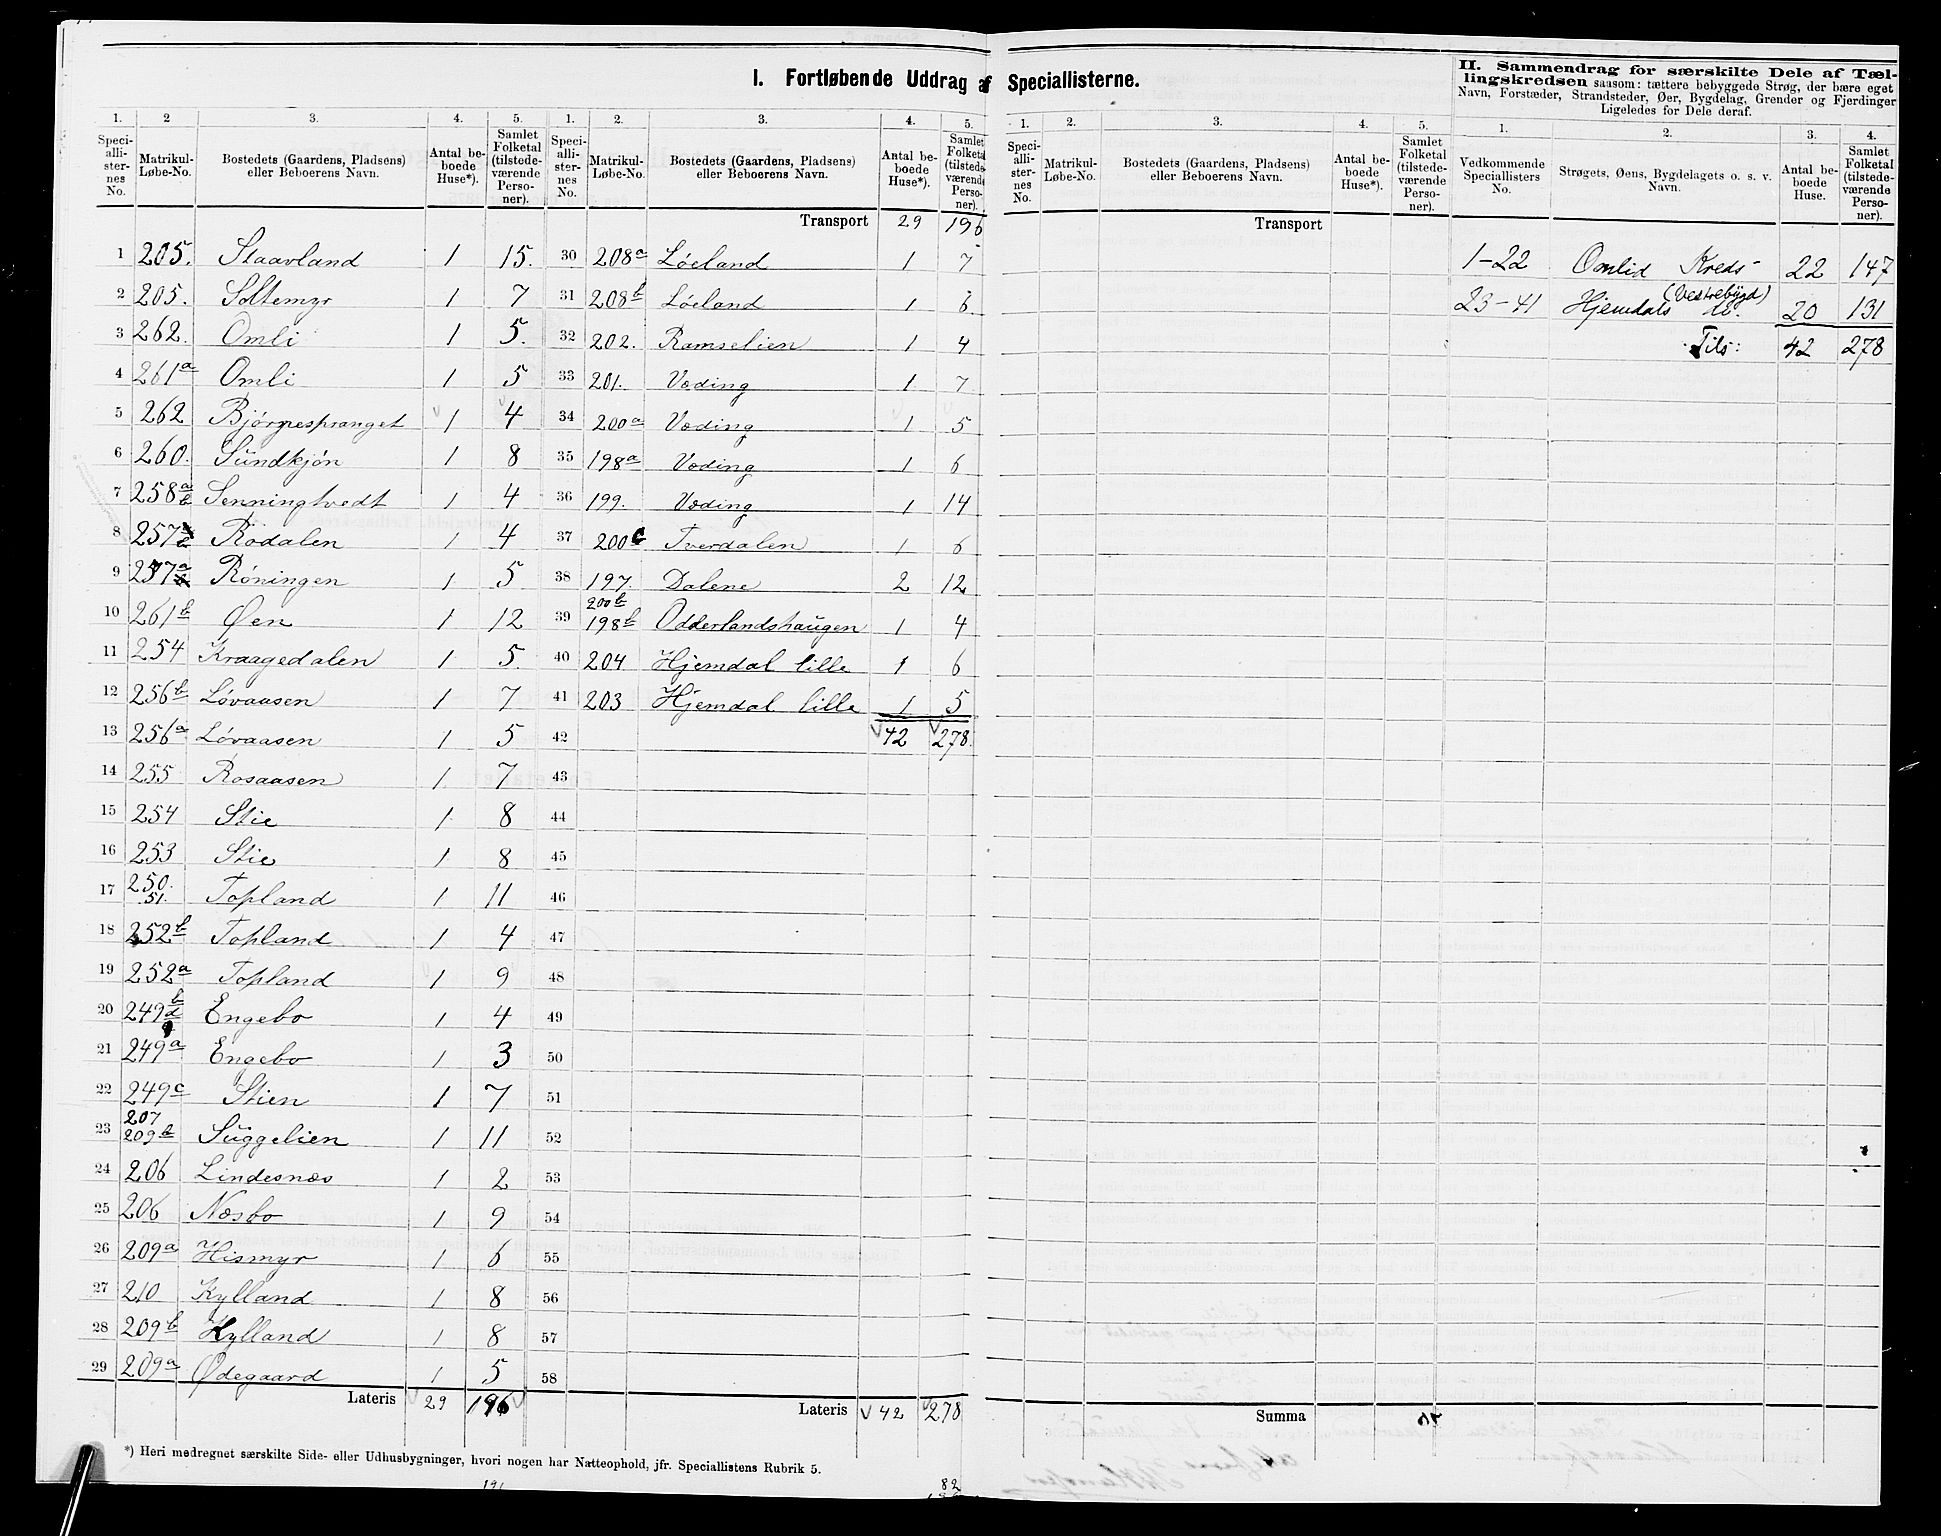 I. Fortløbende Uddrag af Speciallisterne.
II. Sammendrag for særskilte Dele af Tæl-
lingskredsen saasom: tættere bebyggede Strøg, der bære eget
Navn, Forstæder, Strandsteder, Øer, Bygdelag, Grender og Fjerdinger
Ligeledes for Dele deraf.
1. 2 3. 4. 5. 1. 2. 3. 4. 5. 1. 2. 3. 4. 5. 1. 2. 3. 4.
Speci-alli-ster-nes No. Matrikul-Løbe-No. Bostedets (Gaardens, Pladsens) eller Beboerens Navn. Antal be-boede Huse*). Samlet Folketal (tilstede-værende Perso-ner).
Speci-alli-ster-nes No. Matrikul-Løbe-No. Bostedets (Gaardens, Pladsens) eller Beboerens Navn. Antal be-boede Huse*). Samlet Folketal (tilstede-værende Perso-ner).
Speci-alli-ster-nes No. Matrikul-Løbe-No. Bostedets (Gaardens, Pladsens) eller Beboerens Navn. Antal be-boede Huse*). Samlet Folketal (tilstede-værende Perso-ner).
Vedkommende Speciallisters No. Strøgets, Øens, Bygdelagets o. s. v. Navn. Antal be-boede Huse. Samlet Folketal (tilstede-værende Perso-ner).
1 205. Staavland 1 15.
2 205. Soltemyr 1 7
3 262. Omli 1 5.
4 261a Omli 1 5
5 262 Bjørnespranget 1 4
6 260. Sundkjøn 1 8
7 258a b Senningtvedt 1 4
8 257 Rødalen 1 4
9 257a Røningen 1 5
10 261b Øen 1 12
11 254 Kraagedalen 1 5.
12 256b Løvaasen 1 7
13 256a Løvaasen 1 5
14 255 Rosaasen 1 7
15 254 Stie 1 8
16 253 Stie 1 8
17 250. 51. Topland 1 11
18 252b Topland 1 4
19 252a Topland 1 9
20 249b d Engebo 1 4
21 249a Engebo 1 3
22 249c Stien 1 7
23 207 209b Suggelien 1 11
24 206 Lindesnæs 1 2
25 206 Næsbo 1 9
26 209a Hismyr 1 6
27 210 Kylland 1 8
28 209b Kylland 1 8
29 209a Ødegaard 1 5
Lateris 29 196
Transport 29 196
30 208a Løeland 1 7
31 208b Løeland 1 6
32 202. Ramselien 1 4
33 201. Væding 1 7
34 200a Væding 1 5
35 198a Væding 1 6
36 199. Væding 1 14
37 200c Tverdalen 1 6
38 197 Dalene 2 12
39 200b 198b Odderlandshaugen 1 4
40 204 Hjemdal lille 1 6
41 203 Hjemdal lille 1 5
42 42 278.
43
44
45
46
47
48
49
50
51
52
53
54
55
56
57
58
Lateris 42 278
Transport
Summa
1-22 Omlid Kreds 22 147
(Vestrebygd)
23-41 Hjemdals do. 20 131
Tils: 42 278
*) Heri medregnet særskilte Side- eller Udhusbygninger, hvori nogen har Natteophold, jfr. Speciallistens Rubrik 5.
82